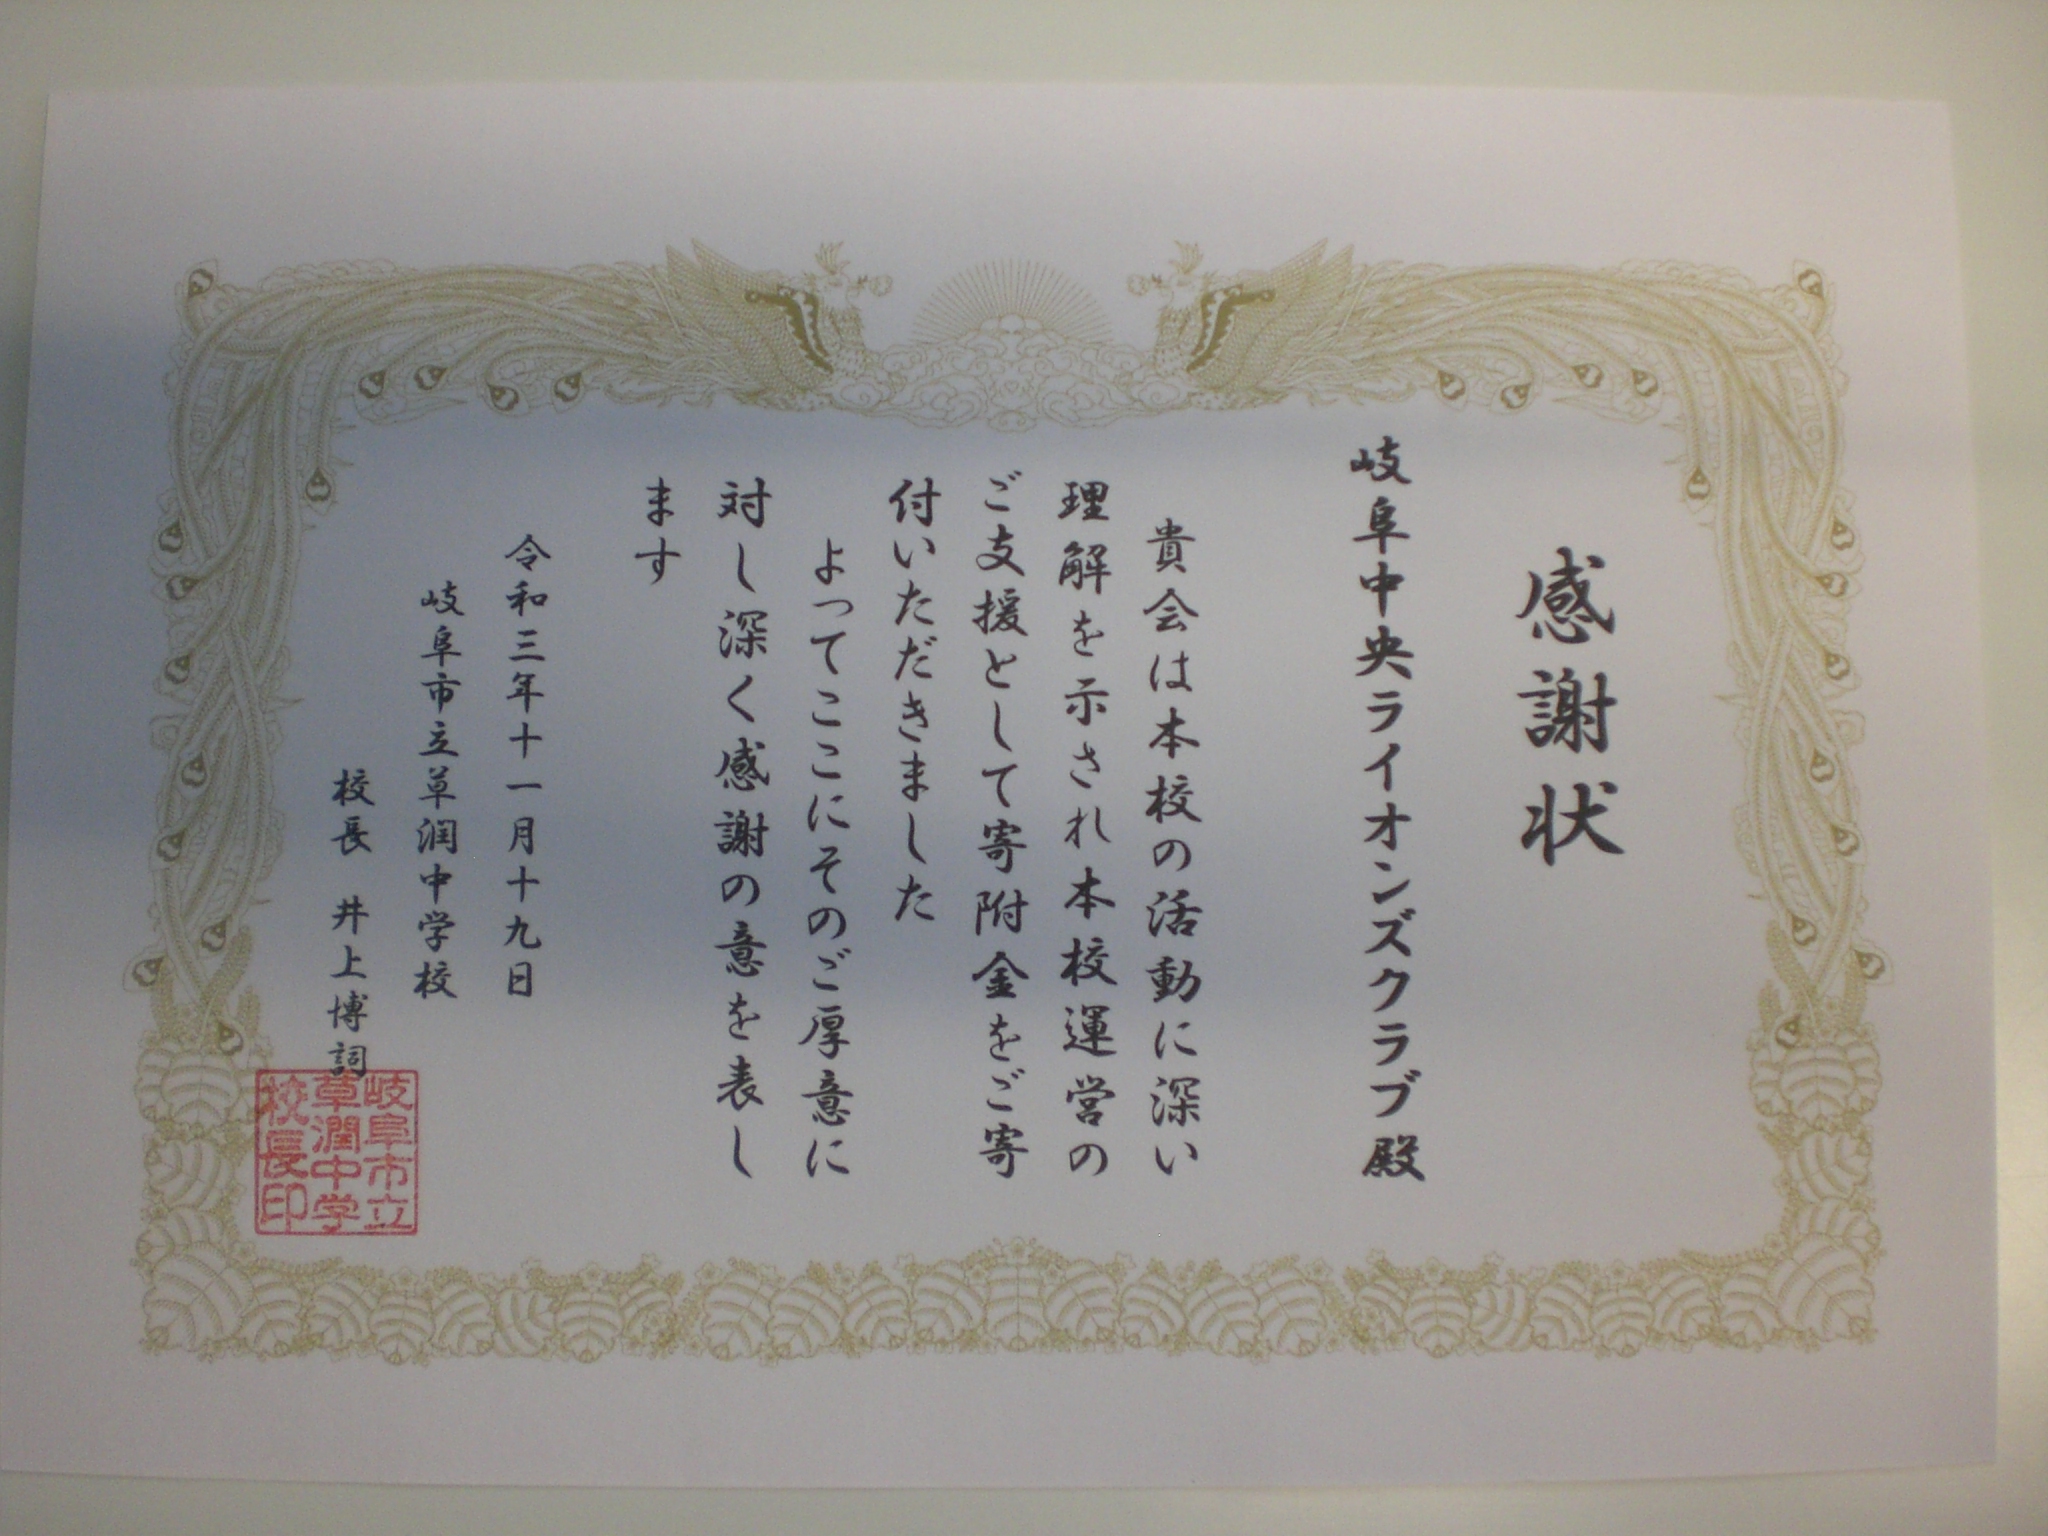 感謝状
岐阜中央ライオンズクラブ殿
貴会は本校の活動に深い
理解を示され本校運営の
ご支援として寄附金をご寄
付いただきました
よってここにそのご厚意に
対し深く感謝の意を表し
ます
令和三年十一月十九日
岐阜市立草潤中学校
校長 井上博詞
岐阜市立
草潤中学
校長印